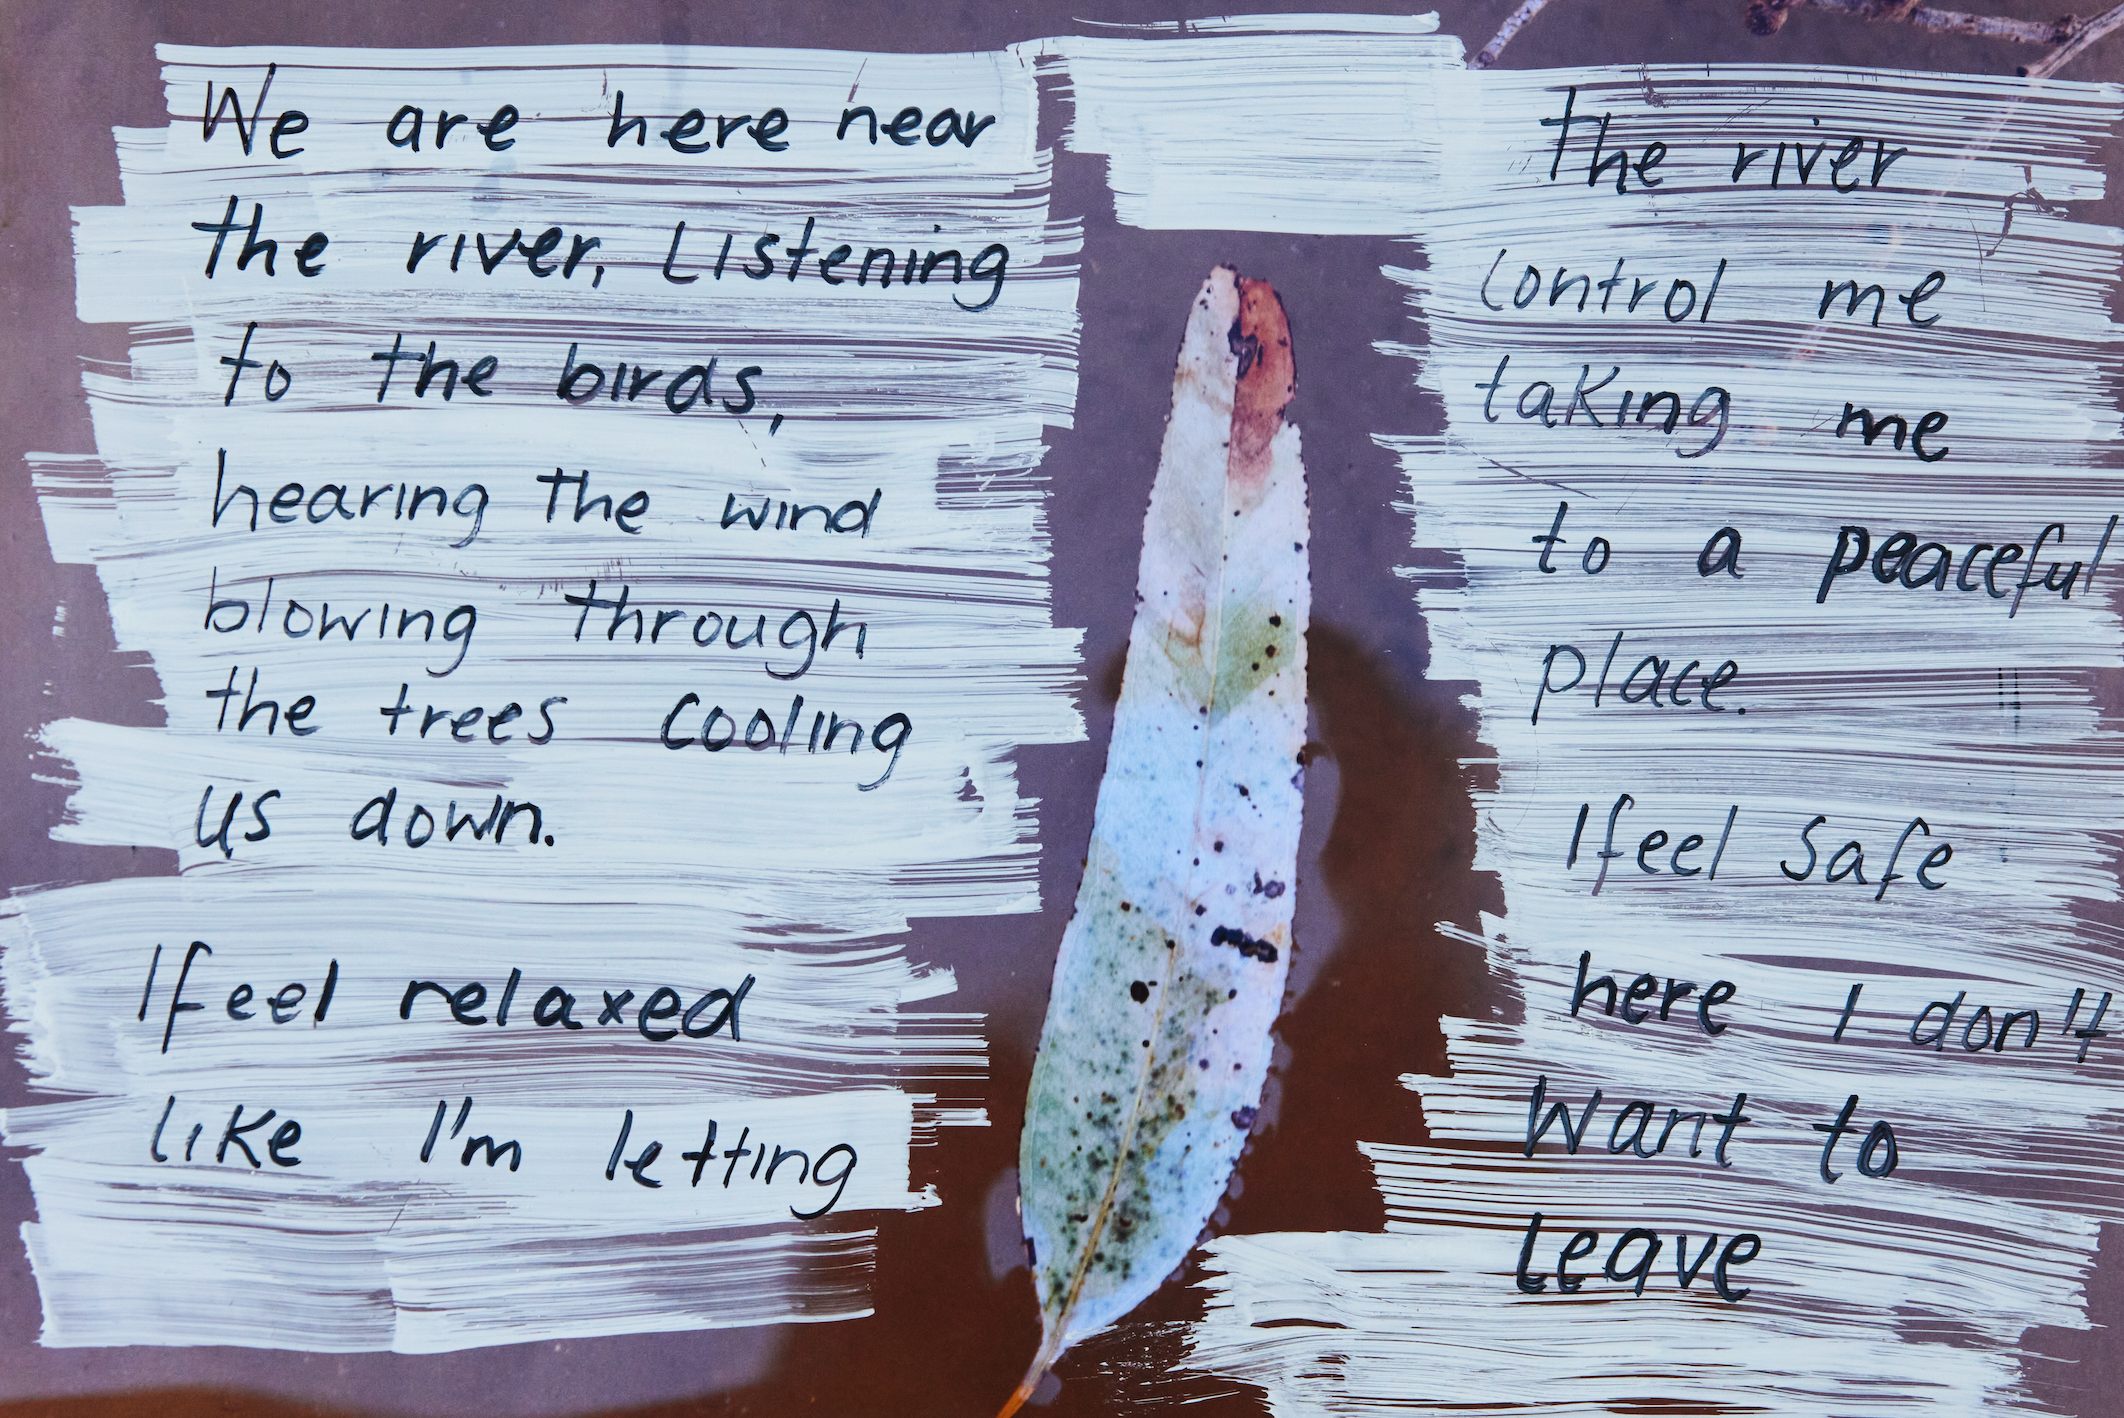 We are here near
the river, Listening
to the birds,
hearing the wind
blowing through
the trees cooling
us down.
I feel relaxed
like I'm letting
the river
control me
taking me
to a peaceful
place.
I feel safe
here I don't
want to
leave